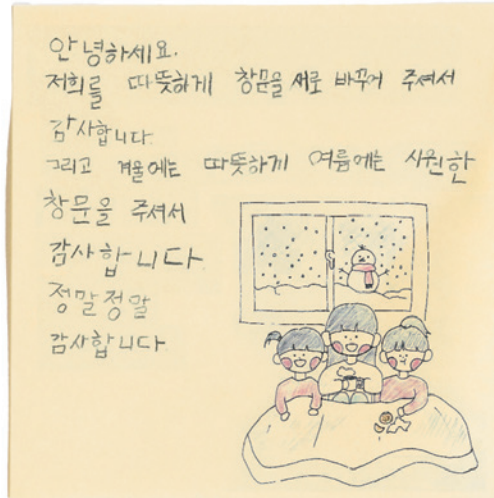 안녕하세요.
저희를 따뜻하게 창문을 새로 바꾸어 주셔서
감사합니다.
그리고 겨울에는 따뜻하게 여름에는 시원한
창문을 주셔서
감사합니다
정말정말
감사합니다